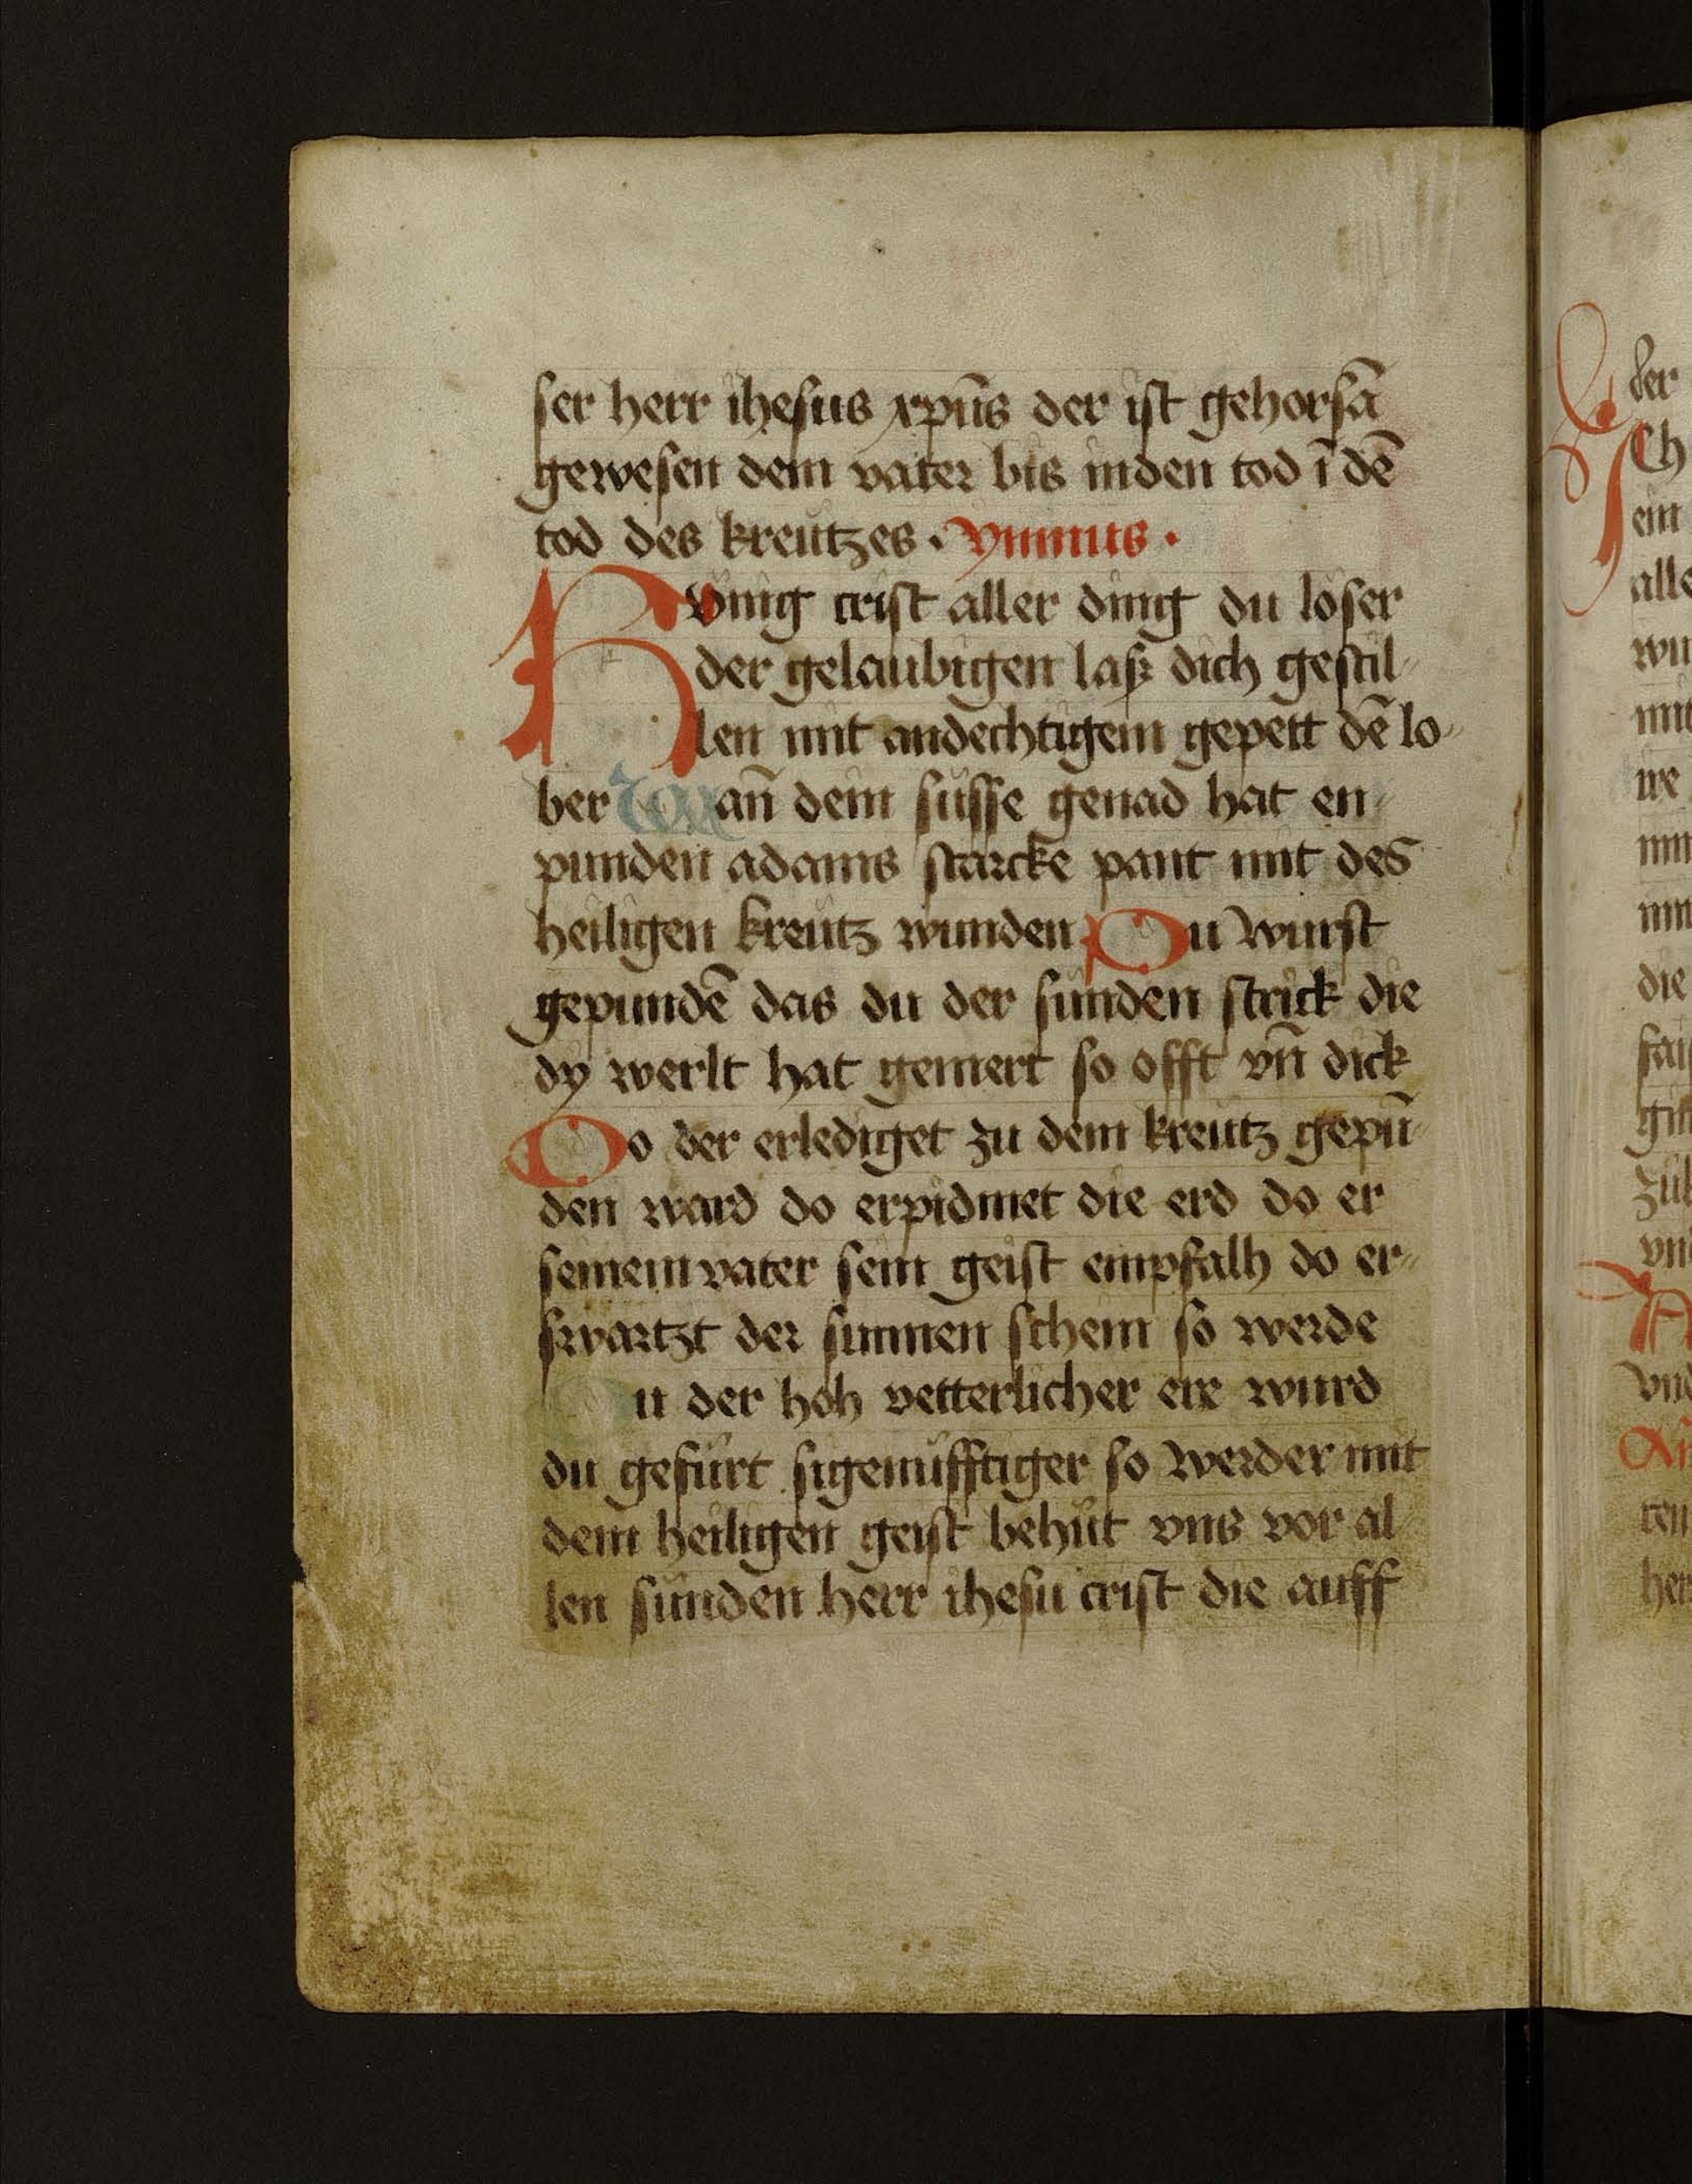 ser herr ihesus xpūs der ist gehorsā
gewesen dem vater bis inden tod ī dē
tod des kreutzes · ymnus ·
Kvnig crist aller ding du loser
der gelaubigen laß dich gestil
len mit andechtigem gepett dē lo
ber Wann̄ dein süsse genad hat en
punden adams starcke pant mit des
heiligen kreutz wunden Du wurst
gepundē das du der sünden strick die
dy werlt hat gemert so offt vn̄ dick
Do der erlediget zu dem kreutz gepū
den ward do erpidmet die erd do er
seinem vater sein geist empfalh do er
swartzt der sunnen schein so werde
Du der hoh vetterlicher ere wurd
du gefürt sigenüfftiger so werder mit
dem heiligen geist behüt vns vor al
len sünden herr ihesu crist die auff
der
Ch
ein
alle
mit
die
vnd
her